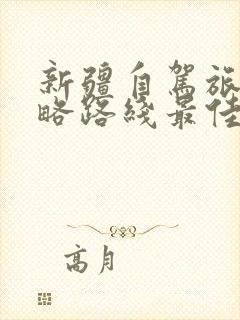 新疆自驾旅
略路线最佳
高月